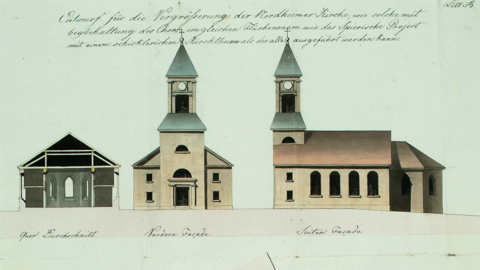 Litt. B.
Entwurf für die Vergrößerung der Nordheimer Kirche, wie solche mit
beybehaltung des Chors, im gleichen Flächenraum wie das Speierische Project
mit einem schicklicheren Kirchthurm als der alte ausgeführt werden kann.
Quer Durchschnitt
Vordere Façade
Seiten Façade